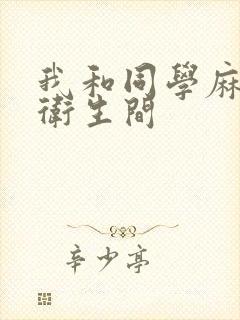 我和同學麻
衛生間
辛少亭